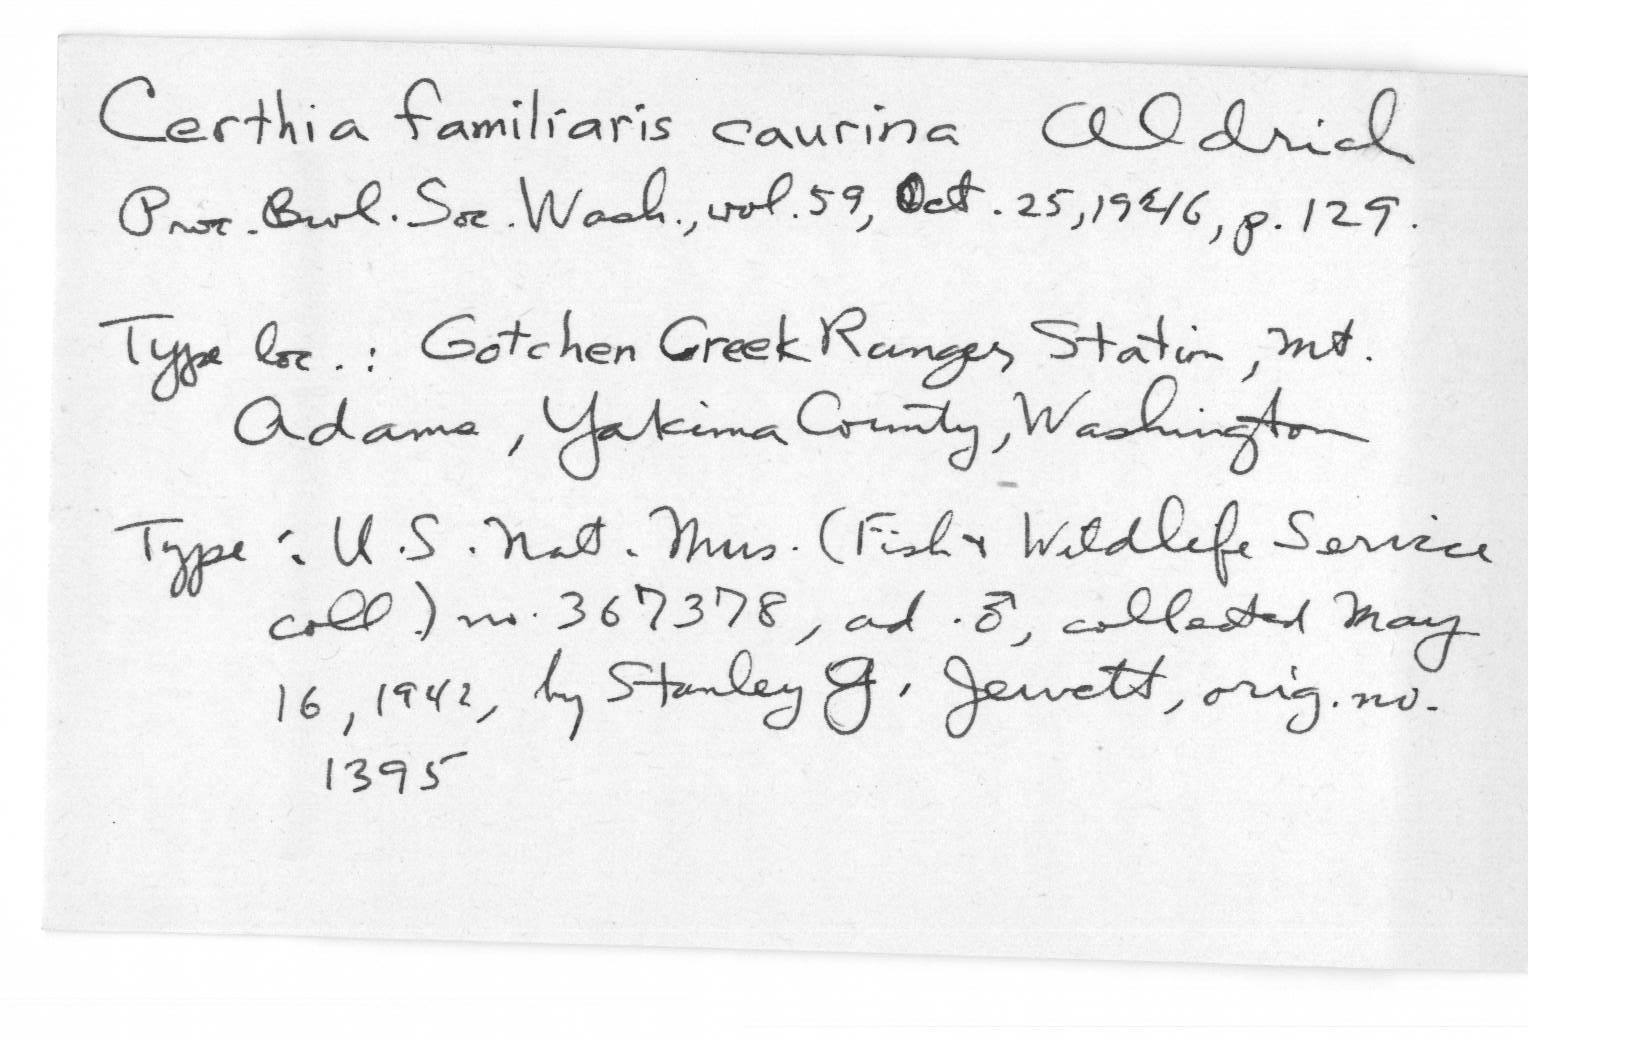 Certhia familiaris caurina Aldrich
Proc. Biol. Soc. Wash., vol. 59, Oct. 25, 1946, p. 129.
Type loc.: Gotchen Creek Ranger Station, Mt.
Adams, Yakima County, Washington
Type: U.S. Nat. Mus. (Fish & Wildlife Service
coll.) no. 367378, ad. ♂, collected May
16, 1942, by Stanley G. Jewett, orig. no.
1395